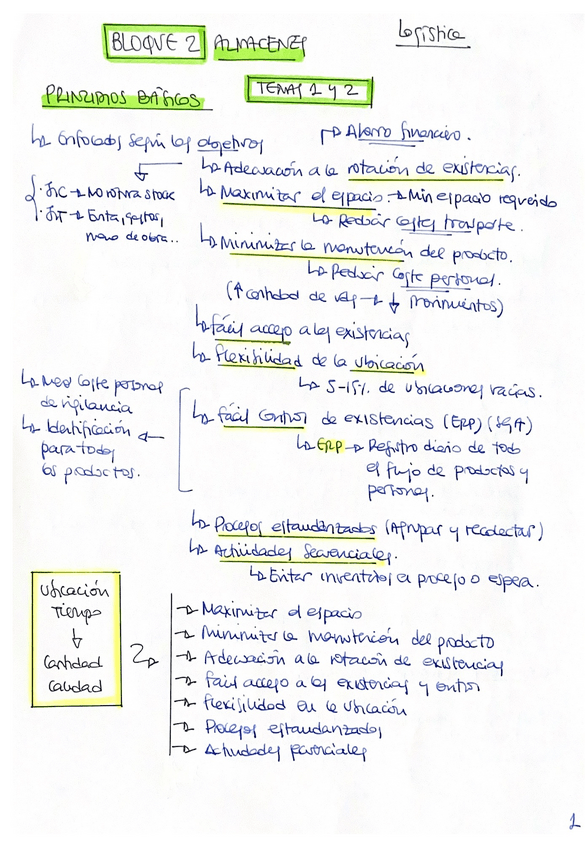 Logística
BLOQUE 2 ALMACENES
TEMAS 1 y 2
PRINCIPIOS BÁSICOS
↳ Enfocados según los objetivos
→ Ahorro financiero.
↳ Adecuación a la rotación de existencias.
· JIC → No rotura stock
· JIT → Evita, gastos,
mano de obra..
↳ Maximizar el espacio. → Min espacio requerido
↳ Reducir costes transporte.
↳ Minimizar la manutención del producto.
↳ Reducir coste personal.
(↑ cantidad de → ↓ movimientos)
↳ fácil acceso a las existencias
↳ Flexibilidad de la ubicación
↳ 5-15% de ubicaciones vacías.
↳ Menos coste personal
de vigilancia
↳ Identificación ←
para todos
los productos.
↳ Fácil control de existencias (ERP) (SGA)
↳ ERP → Registro diario de todo
el flujo de productos y
personas.
↳ Procesos estandarizados (Agrupar y recolectar)
↳ Actividades Secuenciales.
↳ Evitar inventarios en proceso o espera.
Ubicación
Tiempo
↓
Cantidad
Calidad
→ Maximizar el espacio
→ Minimizar la manutención del producto
→ Adecuación a la rotación de existencias
→ Fácil acceso a las existencias y
→ Flexibilidad en la ubicación
→ Procesos estandarizados
→ Actividades
1